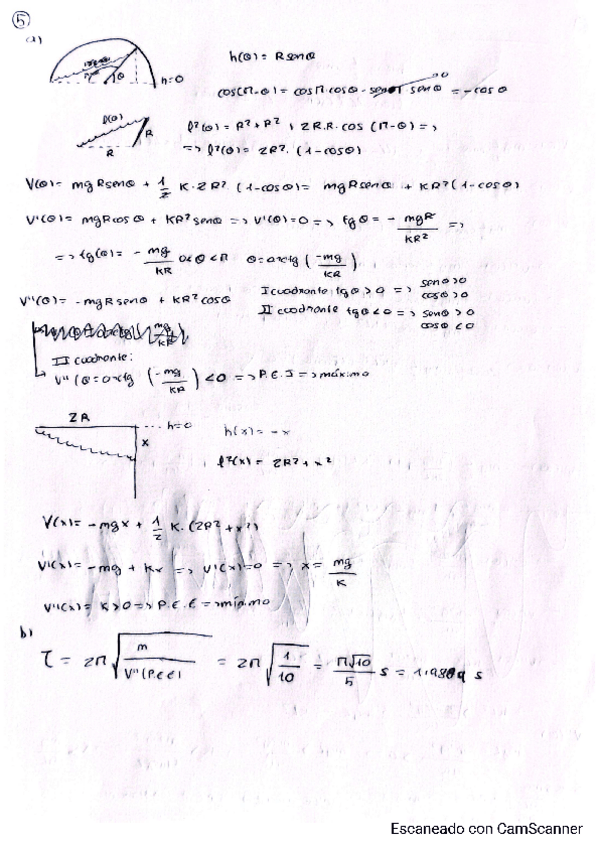 5
(a)
h=0
θ
h(θ) = R senθ
cos(π-θ) = cosπ·cosθ - senπ·senθ = -cosθ
l(θ)
R
R
l²(θ) = R² + R² + 2R.R.cos(π-θ) =>
=> l²(θ) = 2R²·(1-cosθ)
V(θ) = mgRsenθ + 1/2 K·2R²(1-cosθ) = mgRsenθ + KR²(1-cosθ)
V'(θ) = mgRcosθ + KR²senθ => V'(θ)=0 => tgθ = - mgR/KR² =>
=> tg(θ) = - mg/KR 0<θ<π θ=arctg(-mg/KR)
V''(θ) = -mgRsenθ + KR²cosθ
I cuadrante tgθ>0 => senθ>0
cosθ>0
II cuadrante tgθ<0 => senθ>0
cosθ<0
II cuadrante:
V''(θ=arctg(-mg/KR)<0 => P.E.I => máximo
2R
h=0
x
h(x) = -x
l²(x) = 2R² + x²
V(x) = -mgx + 1/2 K·(2R²+x²)
V'(x) = -mg + Kx => V'(x)=0 => x = mg/K
V''(x) = K>0 => P.E.E => mínimo
b)
τ = 2π√(m/V''(P.E.E)) = 2π√(1/10) = π√10/5 s = 1,989 s
Escaneado con CamScanner